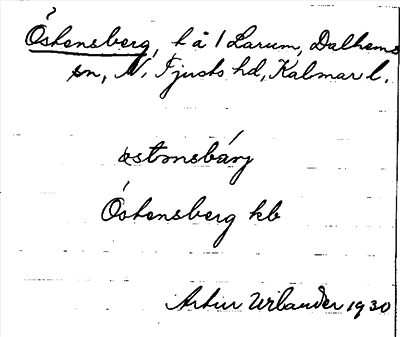 Östensberg, t å 1 Larum, Dalhems
sn, N. Tjusts hd, Kalmar l.
östənsbárj
Östensberg kb
Artur Urlander 1930